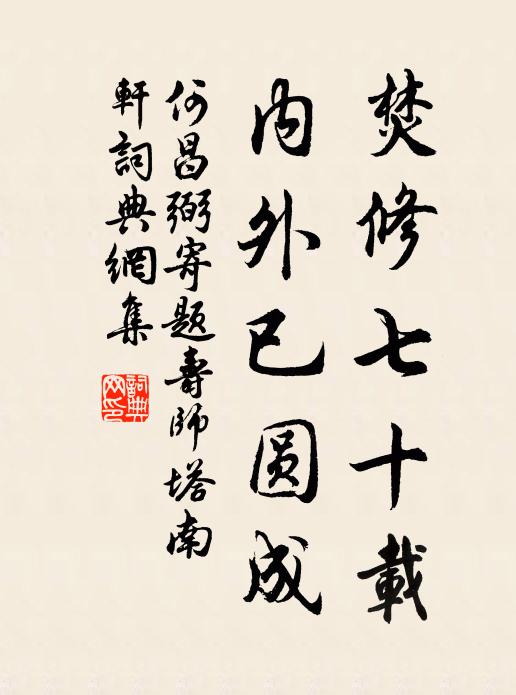 焚修七十載
內外已圓成
何昌弼寄題壽師塔南
軒詞典網集
詞典
网印